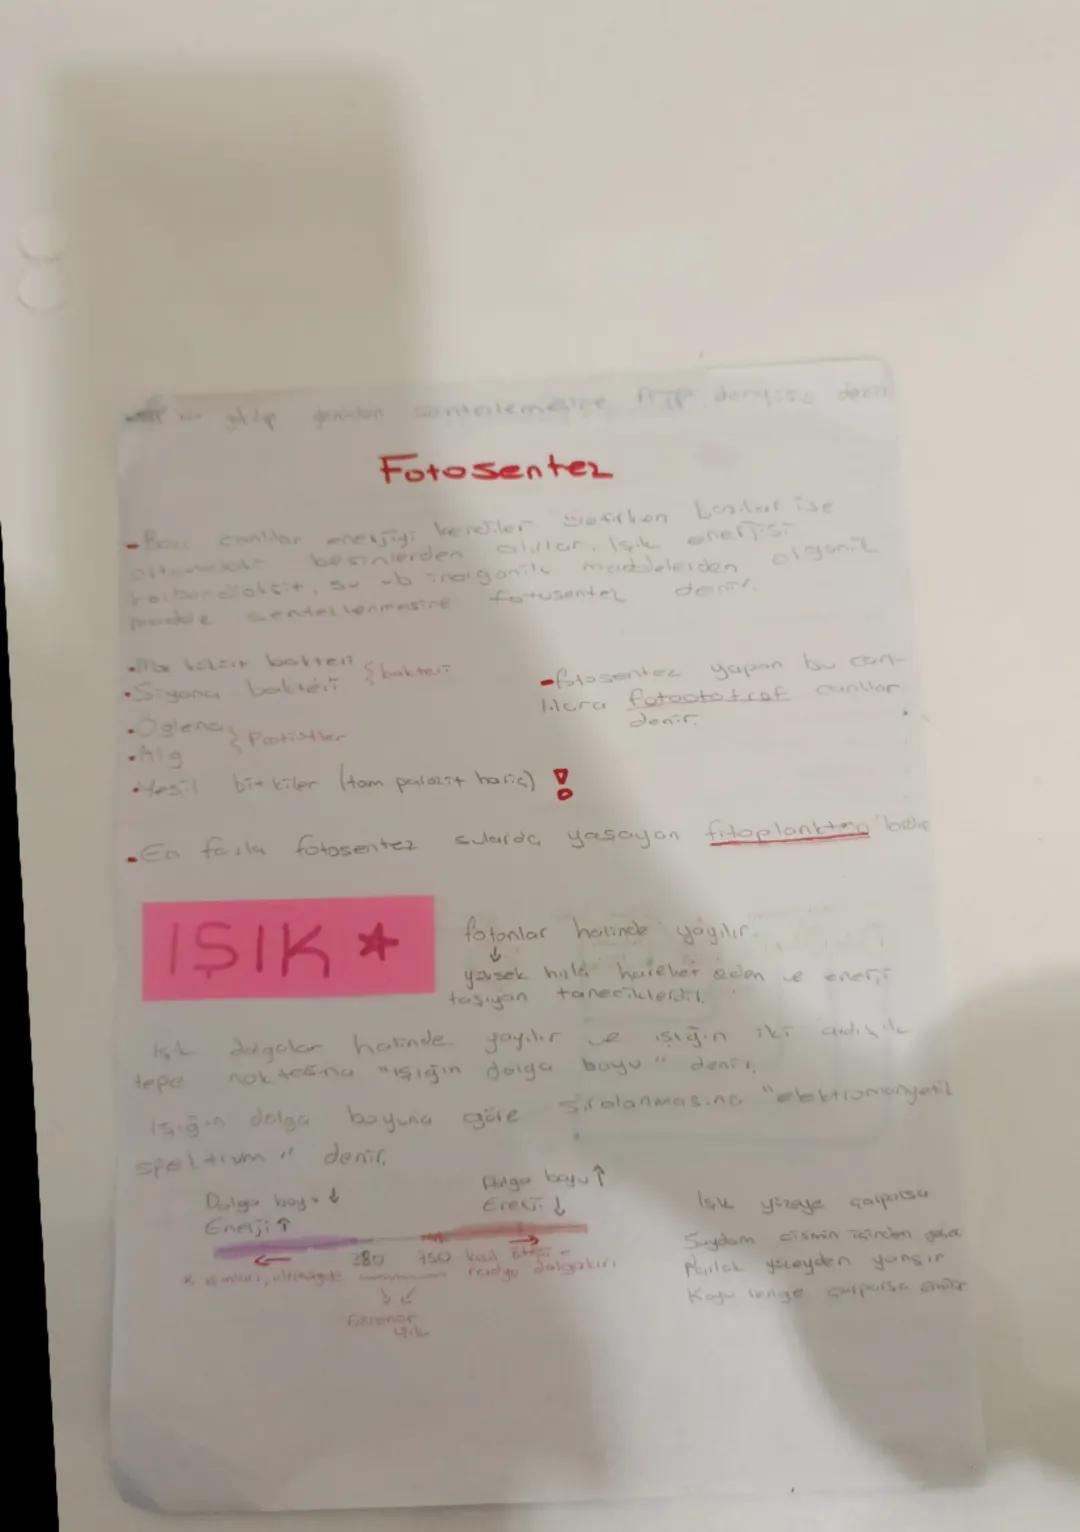 yeniden sentezlenmesine ATP döngüsü denir
Fotosentez
-Bazı canlılar enerjiyi kendiler üretirken bazıları ise
besinlerden alırlar. Işık enerjisi
karbondioksit, su vb inorganik maddelerden organik
madde sentezlenmesine fotosentez denir.
bakteri
•Siyano bakteri } bakteri
•Öglena
•Alg } Protistler
•Yeşil bitkiler (tam parazit hariç) !
-fotosentez yapan bu can-
lılara fotoototrof canlılar
denir.
•En fazla fotosentez sularda yaşayan fitoplankton
IŞIK ★
fotonlar halinde yayılır.
↓
yüksek hızla hareket eden ve enerji
taşıyan taneciklerdir.
Işık dalgalar halinde yayılır ve ışığın iki ardışık
tepe noktasına "ışığın dalga boyu" denir.
Işığın dalga boyuna göre sıralanmasına "elektromanyetik
spektrum" denir.
Dalga boyu ↓
Enerji ↑
Dalga boyu ↑
Enerji ↓
380 750
x ışınları, kızıl ötesi -
radyo dalgaları
Işık yüzeye çarparsa
Saydam cismin içinden geçer
Parlak yüzeyden yansır
Koyu renge çarparsa